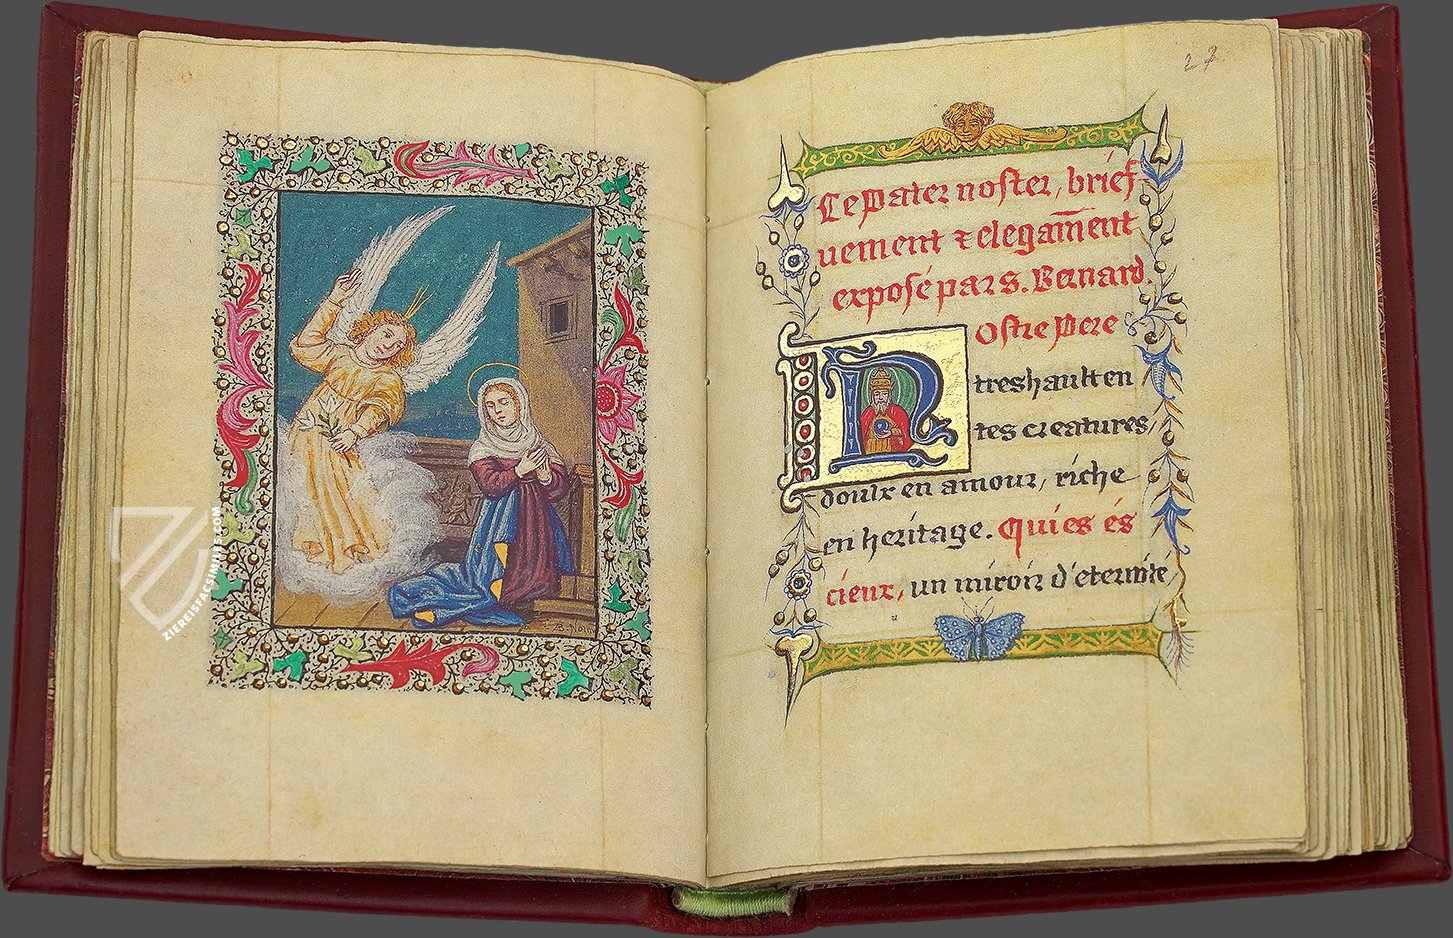 ZIEREISFACSIMILE.COM
27
Le Pater noster, brief-
uement & elegam̄ent
exposé par s. Bernard.
Nostre Pere
treshault en
tes creatures,
doulx en amour, riche
en heritage. Qui es és
cieux, un miroir d'eternité